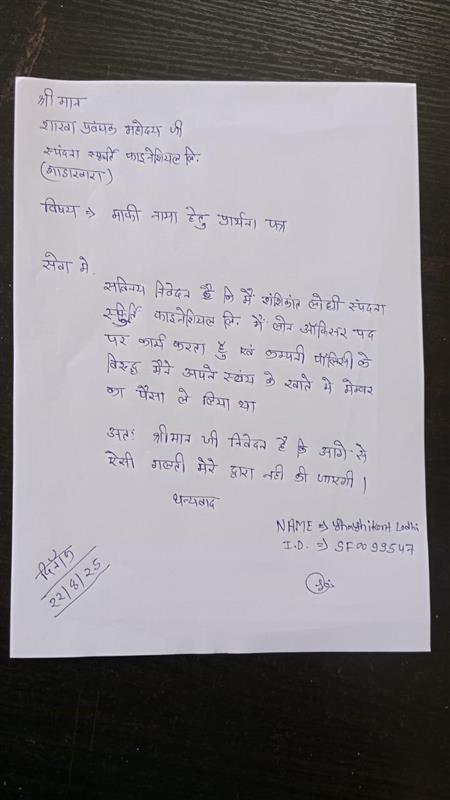 श्रीमान
शाखा प्रबंधक महोदय जी
स्पंदना स्फूर्ति फाइनेंशियल लि.
(गाडारवारा)
विषय => माफी नामा हेतु प्रार्थना पत्र
सेवा मे.
सविनय निवेदन है कि मैं शशिकांत लोधी स्पंदना
स्फूर्ति फाइनेंशियल लि. में लोन ऑफिसर पद
पर कार्य करता हु एवं कम्पनी पॉलिसी के
विरुद्ध मैने अपने स्वंय के खाते मे मेम्बर
का पैसा ले लिया था
अतः श्रीमान जी निवेदन है कि आगे से
ऐसी गलती मेरे द्वारा नही की जाएगी।
धन्यवाद
NAME => Shashikant Lodhi
I.D. => SF0099547
दिनाँक
22/8/25